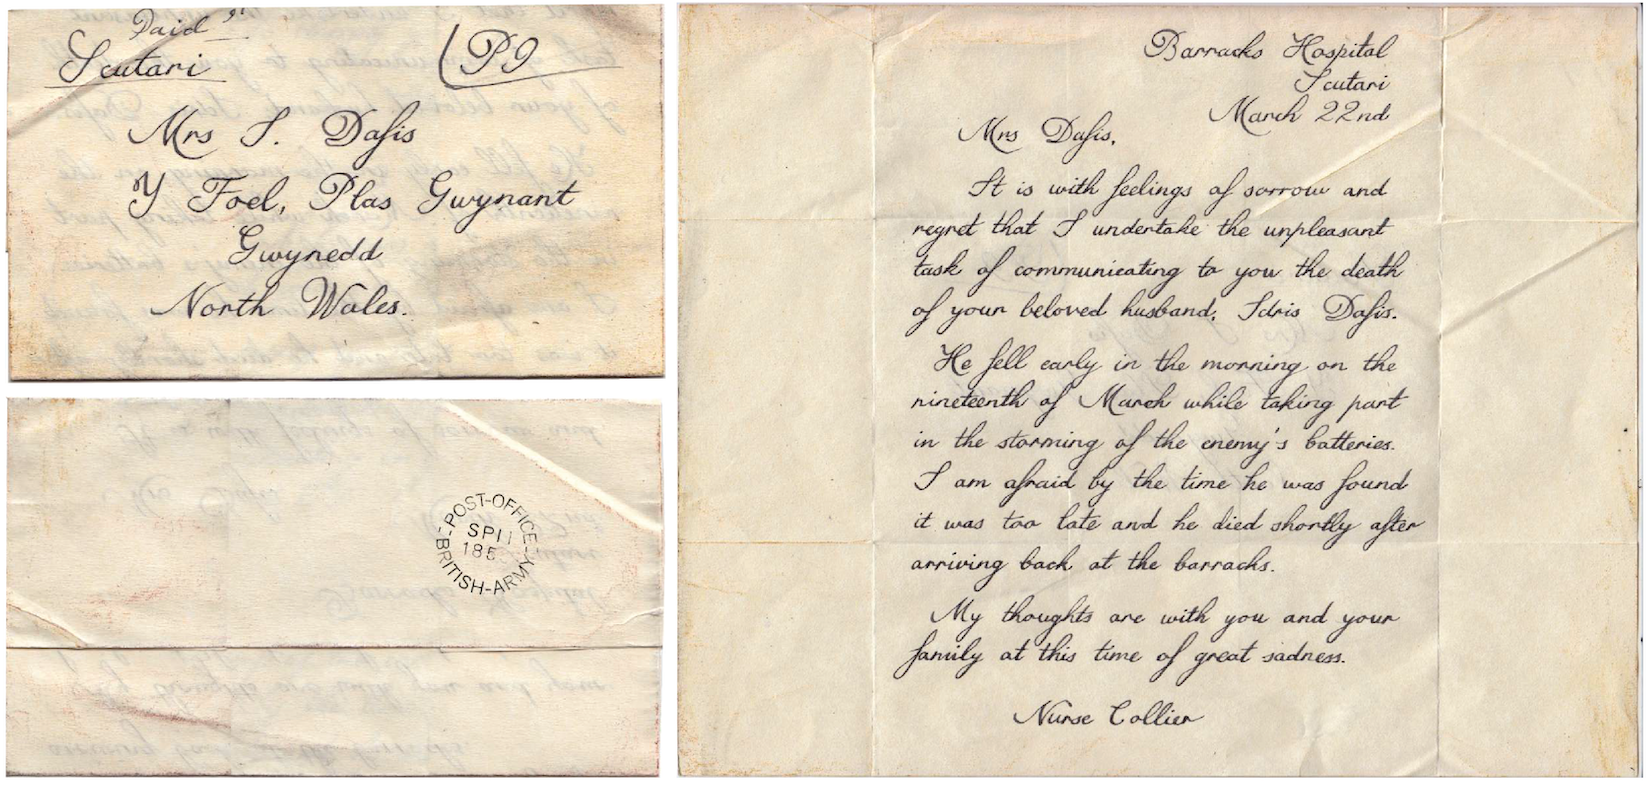 Paid
Scutari
P9
Mrs S. Dafis
Y Foel, Plas Gwynant
Gwynedd
North Wales.
POST-OFFICE
SP11
185
BRITISH-ARMY
Barracks Hospital
Scutari
March 22nd
Mrs Dafis,
It is with feelings of sorrow and
regret that I undertake the unpleasant
task of communicating to you the death
of your beloved husband, Idris Dafis.
He fell early in the morning on the
nineteenth of March while taking part
in the storming of the enemy's batteries.
I am afraid by the time he was found
it was too late and he died shortly after
arriving back at the barracks.
My thoughts are with you and your
family at this time of great sadness.
Nurse Collier